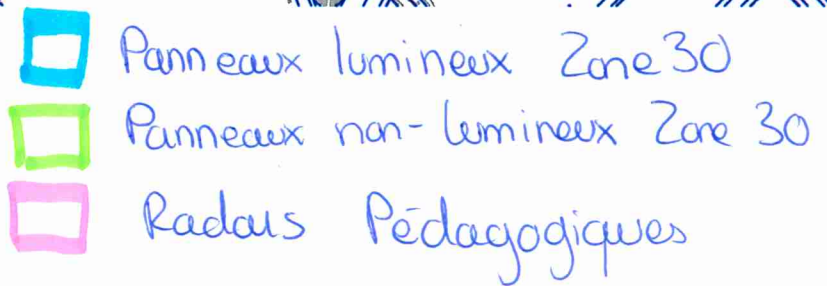 Panneaux lumineux Zone 30
Panneaux non-lumineux Zone 30
Radars Pédagogiques